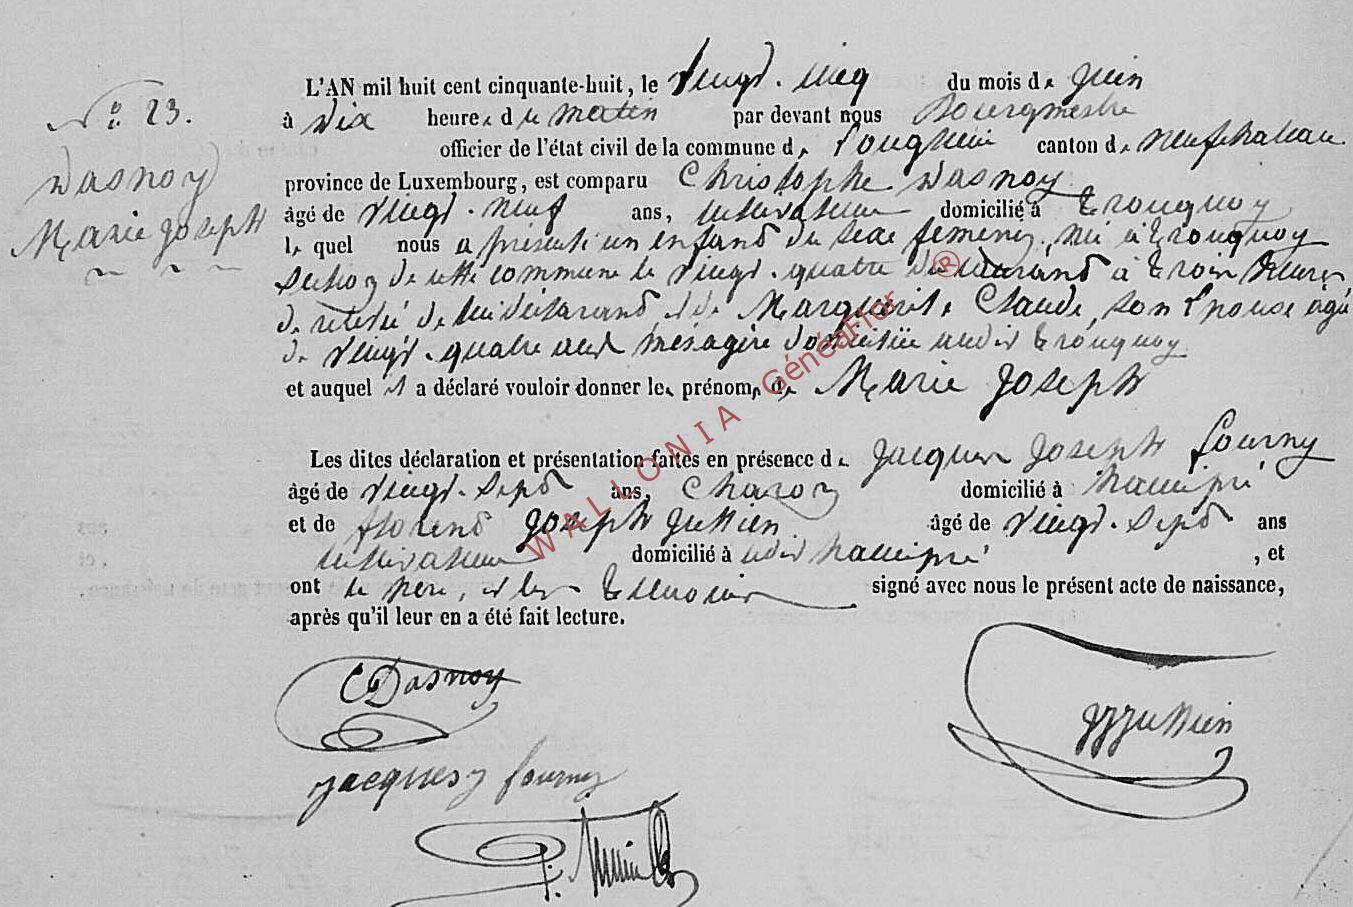 N° 23.
Dasnoy
Marie Joseph
L'AN mil huit cent cinquante-huit, le Vingt-cinq du mois de Juin
à Dix heures du matin par devant nous Bourgmestre
officier de l'état civil de la commune de Longlier canton de Neufchateau
province de Luxembourg, est comparu Christophe Dasnoy
âgé de vingt-neuf ans, cultivateur domicilié à Tronquoy
lequel nous a présenté un enfant du sexe feminin, né à Tronquoy
section de cette commune le vingt-quatre du courant à trois heures
de relevé de lui déclarant et de Marguerite Claude, son Epouse agée
de vingt-quatre ans ménagère domiciliée audit Tronquoy
et auquel il a déclaré vouloir donner les prénoms de Marie Joseph
Les dites déclaration et présentation faites en présence de Jacques Joseph Fourny
âgé de vingt-sept ans, Charon domicilié à Hamipré
et de florent Joseph Jussien âgé de vingt-sept ans
cultivateur domicilié à udit hamipré , et
ont le père, et les temoins signé avec nous le présent acte de naissance,
après qu'il leur en a été fait lecture.
C Dasnoy
Jacques J fourny
WALLONIA Généaflor ®